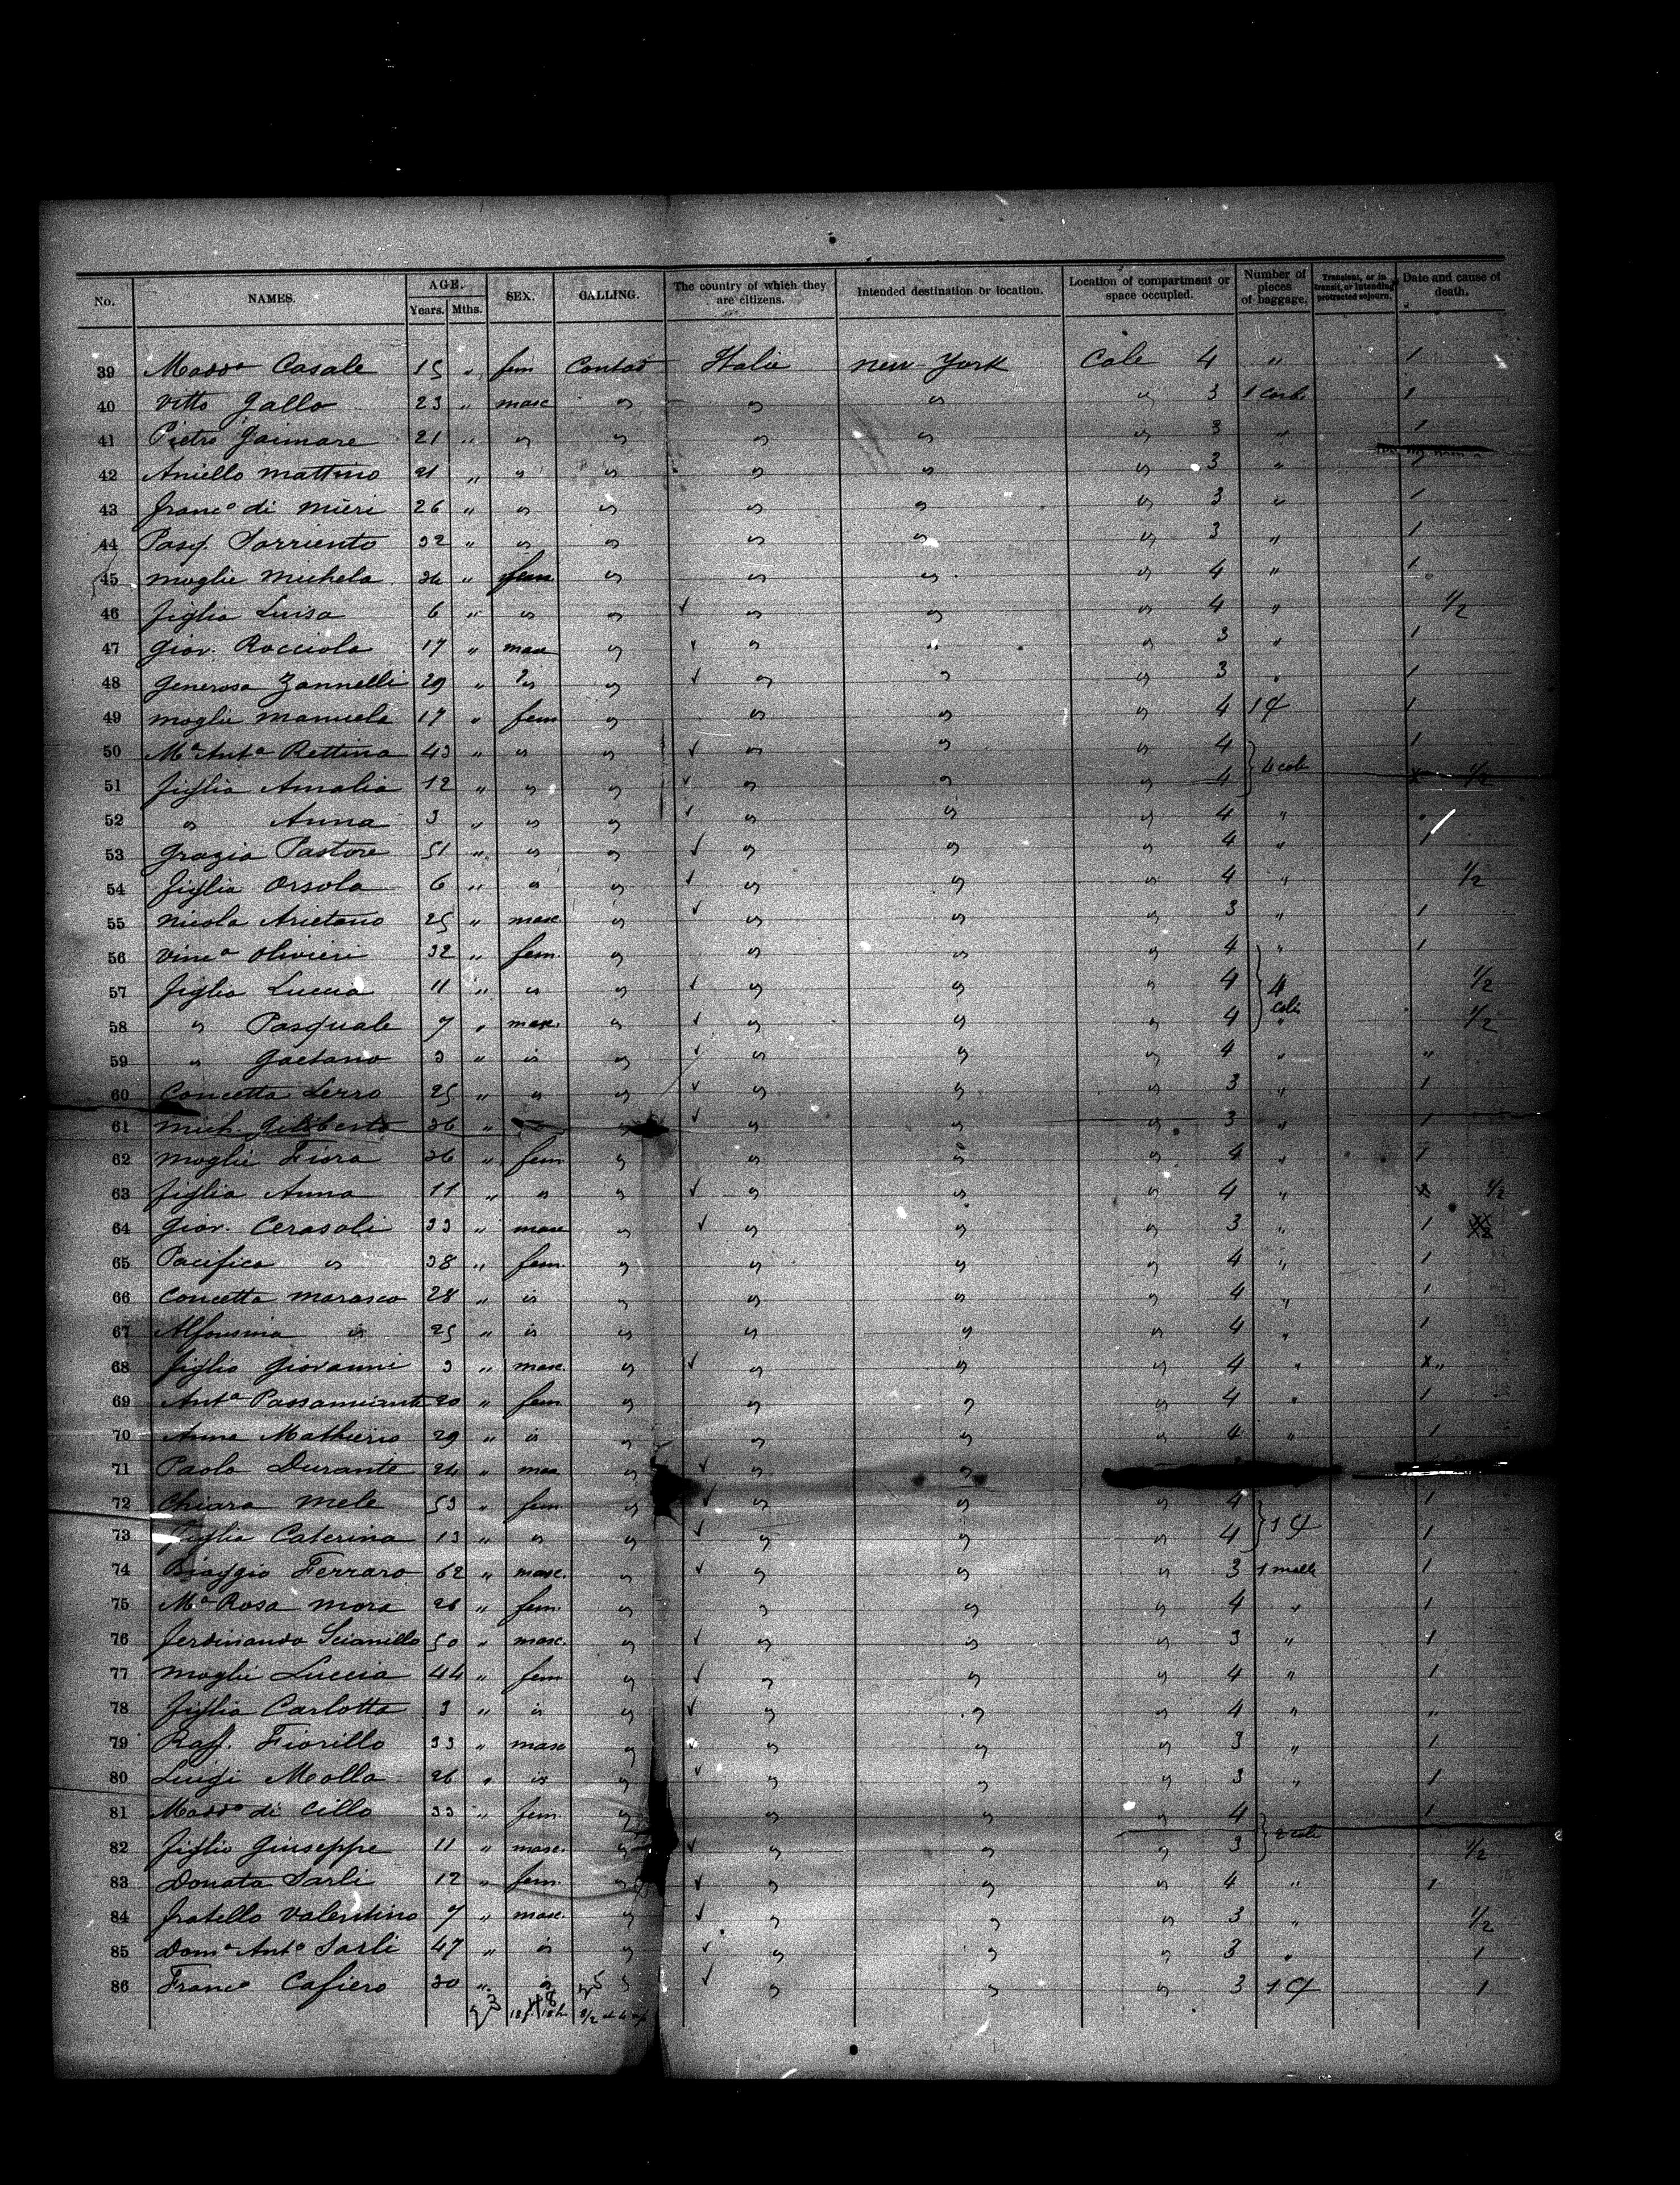 No. NAMES. AGE. Years. Mths. SEX. CALLING. The country of which they are citizens. Intended destination or location. Location of compartment or space occupied. Number of pieces of baggage. Transient, or in transit, or intending protracted sojourn. Date and cause of death.
39 Madda Casale 15 " fem Contad Italie New-York Cale 4 " 1
40 Vitto Gallo 23 " masc " " " " 3 1 1
41 Pietro Gaimare 21 " " " " " " 3 " 1
42 Aniello Mattino 21 " " " " " " 3 "
43 Franco di Mieri 26 " " " " " " 3 " 1
44 Pasq. Sorriento 32 " " " " " " 3 " 1
45 moglie Michela 34 " fem " " " " 4 " 1
46 figlia Luisa 6 " " " " " " 4 " 1/2
47 Giov. Rocciola 17 " masc " " " " 3 " 1
48 Generosa Zannelli 29 " " " " " 3 " 1
49 moglie Manuela 17 " fem " " " " 4 1 1
50 Ma Anta Rettina 43 " " " " " " 4 4 coli 1
51 figlia Amalia 12 " " " " " " 4 1/2
52 " Anna 3 " " " " " " 4 "
53 Grazia Pastore 51 " " " " " " 4 " 1
54 figlia Orsola 6 " " " " " " 4 " 1/2
55 Nicola Arietano 25 " masc. " " " " 3 " 1
56 Vinca Olivieri 32 " fem. " " " " 4 " 1
57 figlia Luccia 11 " " " " " " 4 4 coli 1/2
58 " Pasquale 7 " masc. " " " " 4 " 1/2
59 " Gaetano 3 " " " " " " 4 " "
60 Concetta Lerro 25 " " " " " " 3 " 1
61 Mich. Geliberto 36 " " " " " 3 " 1
62 moglie Fiora 36 " fem " " " " 4 " 1
63 figlia Anna 11 " " " " " " 4 " 1/2
64 Giov. Cerasoli 33 " masc " " " " 3 " 1
65 Pacifica " 38 " fem. " " " " 4 " 1
66 Concetta Marasco 28 " " " " " " 4 " 1
67 Alfonsina " 25 " " " " " " 4 " 1
68 figlio Giovanni 3 " masc. " " " " 4 " "
69 Anta Passamiante 20 " fem " " " " 4 " 1
70 Anna Mathieris 29 " " " " " " 4 " 1
71 Paolo Durante 24 " mas " " "
72 Chiara Mele 53 " fem. " " " " 4 1
73 figlia Caterina 13 " " " " " " 4 1 1
74 Biaggio Ferraro 62 " masc. " " " " 3 1 malle 1
75 Ma Rosa Mora 26 " fem. " " " " 4 " 1
76 Ferdinando Scianillo 50 " masc. " " " " 3 " 1
77 moglie Luccia 44 " fem " " " " 4 " 1
78 figlia Carlotta 3 " " " " " " 4 " "
79 Raff. Fiorillo 33 " masc " " " " 3 " 1
80 Luigi Molla 26 " " " " " " 3 " 1
81 Madda di Cillo 33 " fem. " " " " 4 2 coli 1
82 figlio Giuseppe 11 " masc. " " " " 3 1/2
83 Donata Sarli 12 " fem. " " " " 4 " 1
84 fratello Valentino 7 " masc. " " " " 3 " 1/2
85 Doma Anto Sarli 47 " " " " " " 3 " 1
86 Franco Cafiero 30 " " " " " 3 1 1